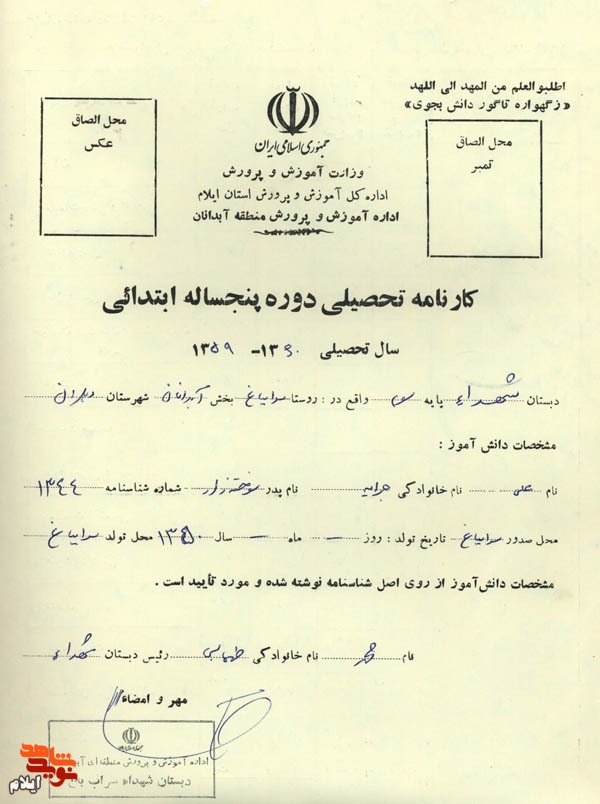 اطلبوالعلم من المهد الی اللهد
«زگهواره تاگور دانش بجوی»
محل الصاق
تمبر
محل الصاق
عکس
جمهوری اسلامی ایران
وزارت آموزش و پرورش
اداره کل آموزش و پرورش استان ایلام
اداره آموزش و پرورش منطقه آبدانان
کارنامه تحصیلی دوره پنجساله ابتدائی
سال تحصیلی ۱۳۶۰ - ۱۳۵۹
دبستان شهداء پایه سوم واقع در : روستا سرابباغ بخش آبدانان شهرستان دهلران
مشخصات دانش آموز :
نام علی نام خانوادگی نام پدر شماره شناسنامه ۱۳۴۴
محل صدور سرابباغ تاریخ تولد : روز — ماه — سال ۱۳۵۰ محل تولد سرابباغ
مشخصات دانش‌آموز از روی اصل شناسنامه نوشته شده و مورد تأیید است .
نام نام خانوادگی طهماسبی رئیس دبستان شهداء
مهر و امضاء
اداره آموزش و پرورش منطقه‌ای
دبستان شهداء سراب باغ
نوید شاهد
ایلام